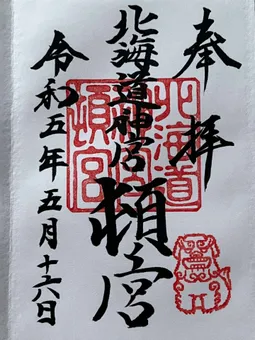 奉拝
北海道神宮
頓宮
令和五年五月十六日
北海道神宮頓宮